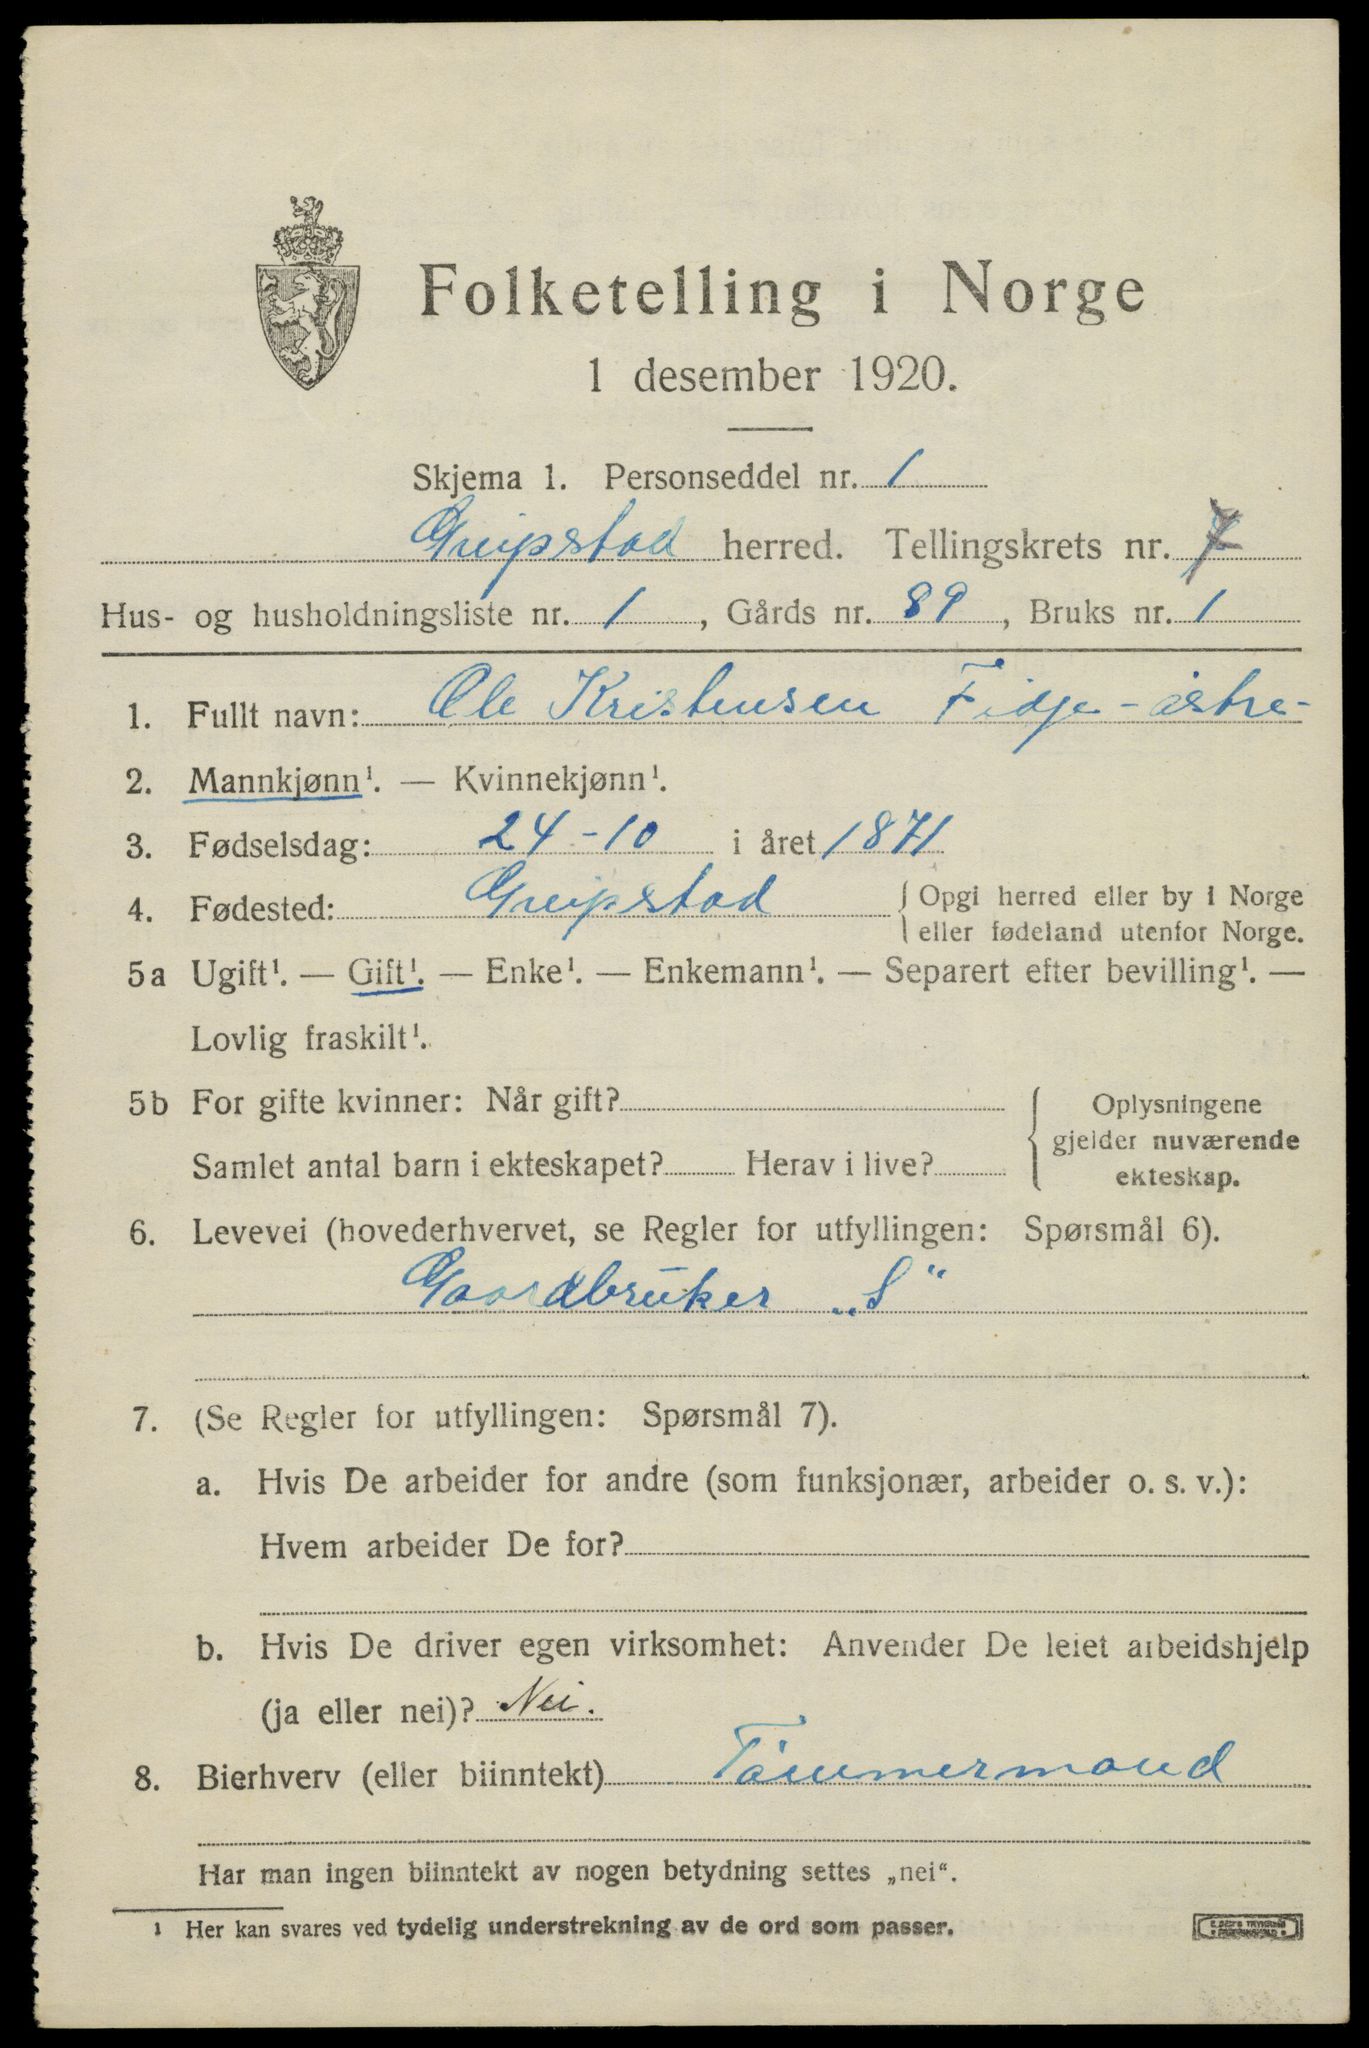 Folketelling i Norge
1 desember 1920.
Skjema 1. Personseddel nr. 1
Greipstad herred. Tellingskrets nr. 7
Hus- og husholdningsliste nr. 1, Gårds nr. 89, Bruks nr. 1
1. Fullt navn: Ole Kristensen Fidje-østre-
2. Mannkjønn¹. — Kvinnekjønn¹.
3. Fødselsdag: 24-10 i året 1871
4. Fødested: Greipstad { Opgi herred eller by i Norge
eller fødeland utenfor Norge.
5a Ugift¹. — Gift¹. — Enke¹. — Enkemann¹. — Separert efter bevilling¹. —
Lovlig fraskilt¹.
5b For gifte kvinner: Når gift? { Oplysningene
gjelder nuværende
Samlet antal barn i ekteskapet? Herav i live?
ekteskap.
6. Levevei (hovederhvervet, se Regler for utfyllingen: Spørsmål 6).
Gaardbruker „S“
7. (Se Regler for utfyllingen: Spørsmål 7).
a. Hvis De arbeider for andre (som funksjonær, arbeider o. s. v.):
Hvem arbeider De for?
b. Hvis De driver egen virksomhet: Anvender De leiet arbeidshjelp
(ja eller nei)? Nei.
8. Bierhverv (eller biinntekt) Tømmermand
Har man ingen biinntekt av nogen betydning settes „nei“.
¹ Her kan svares ved tydelig understrekning av de ord som passer.